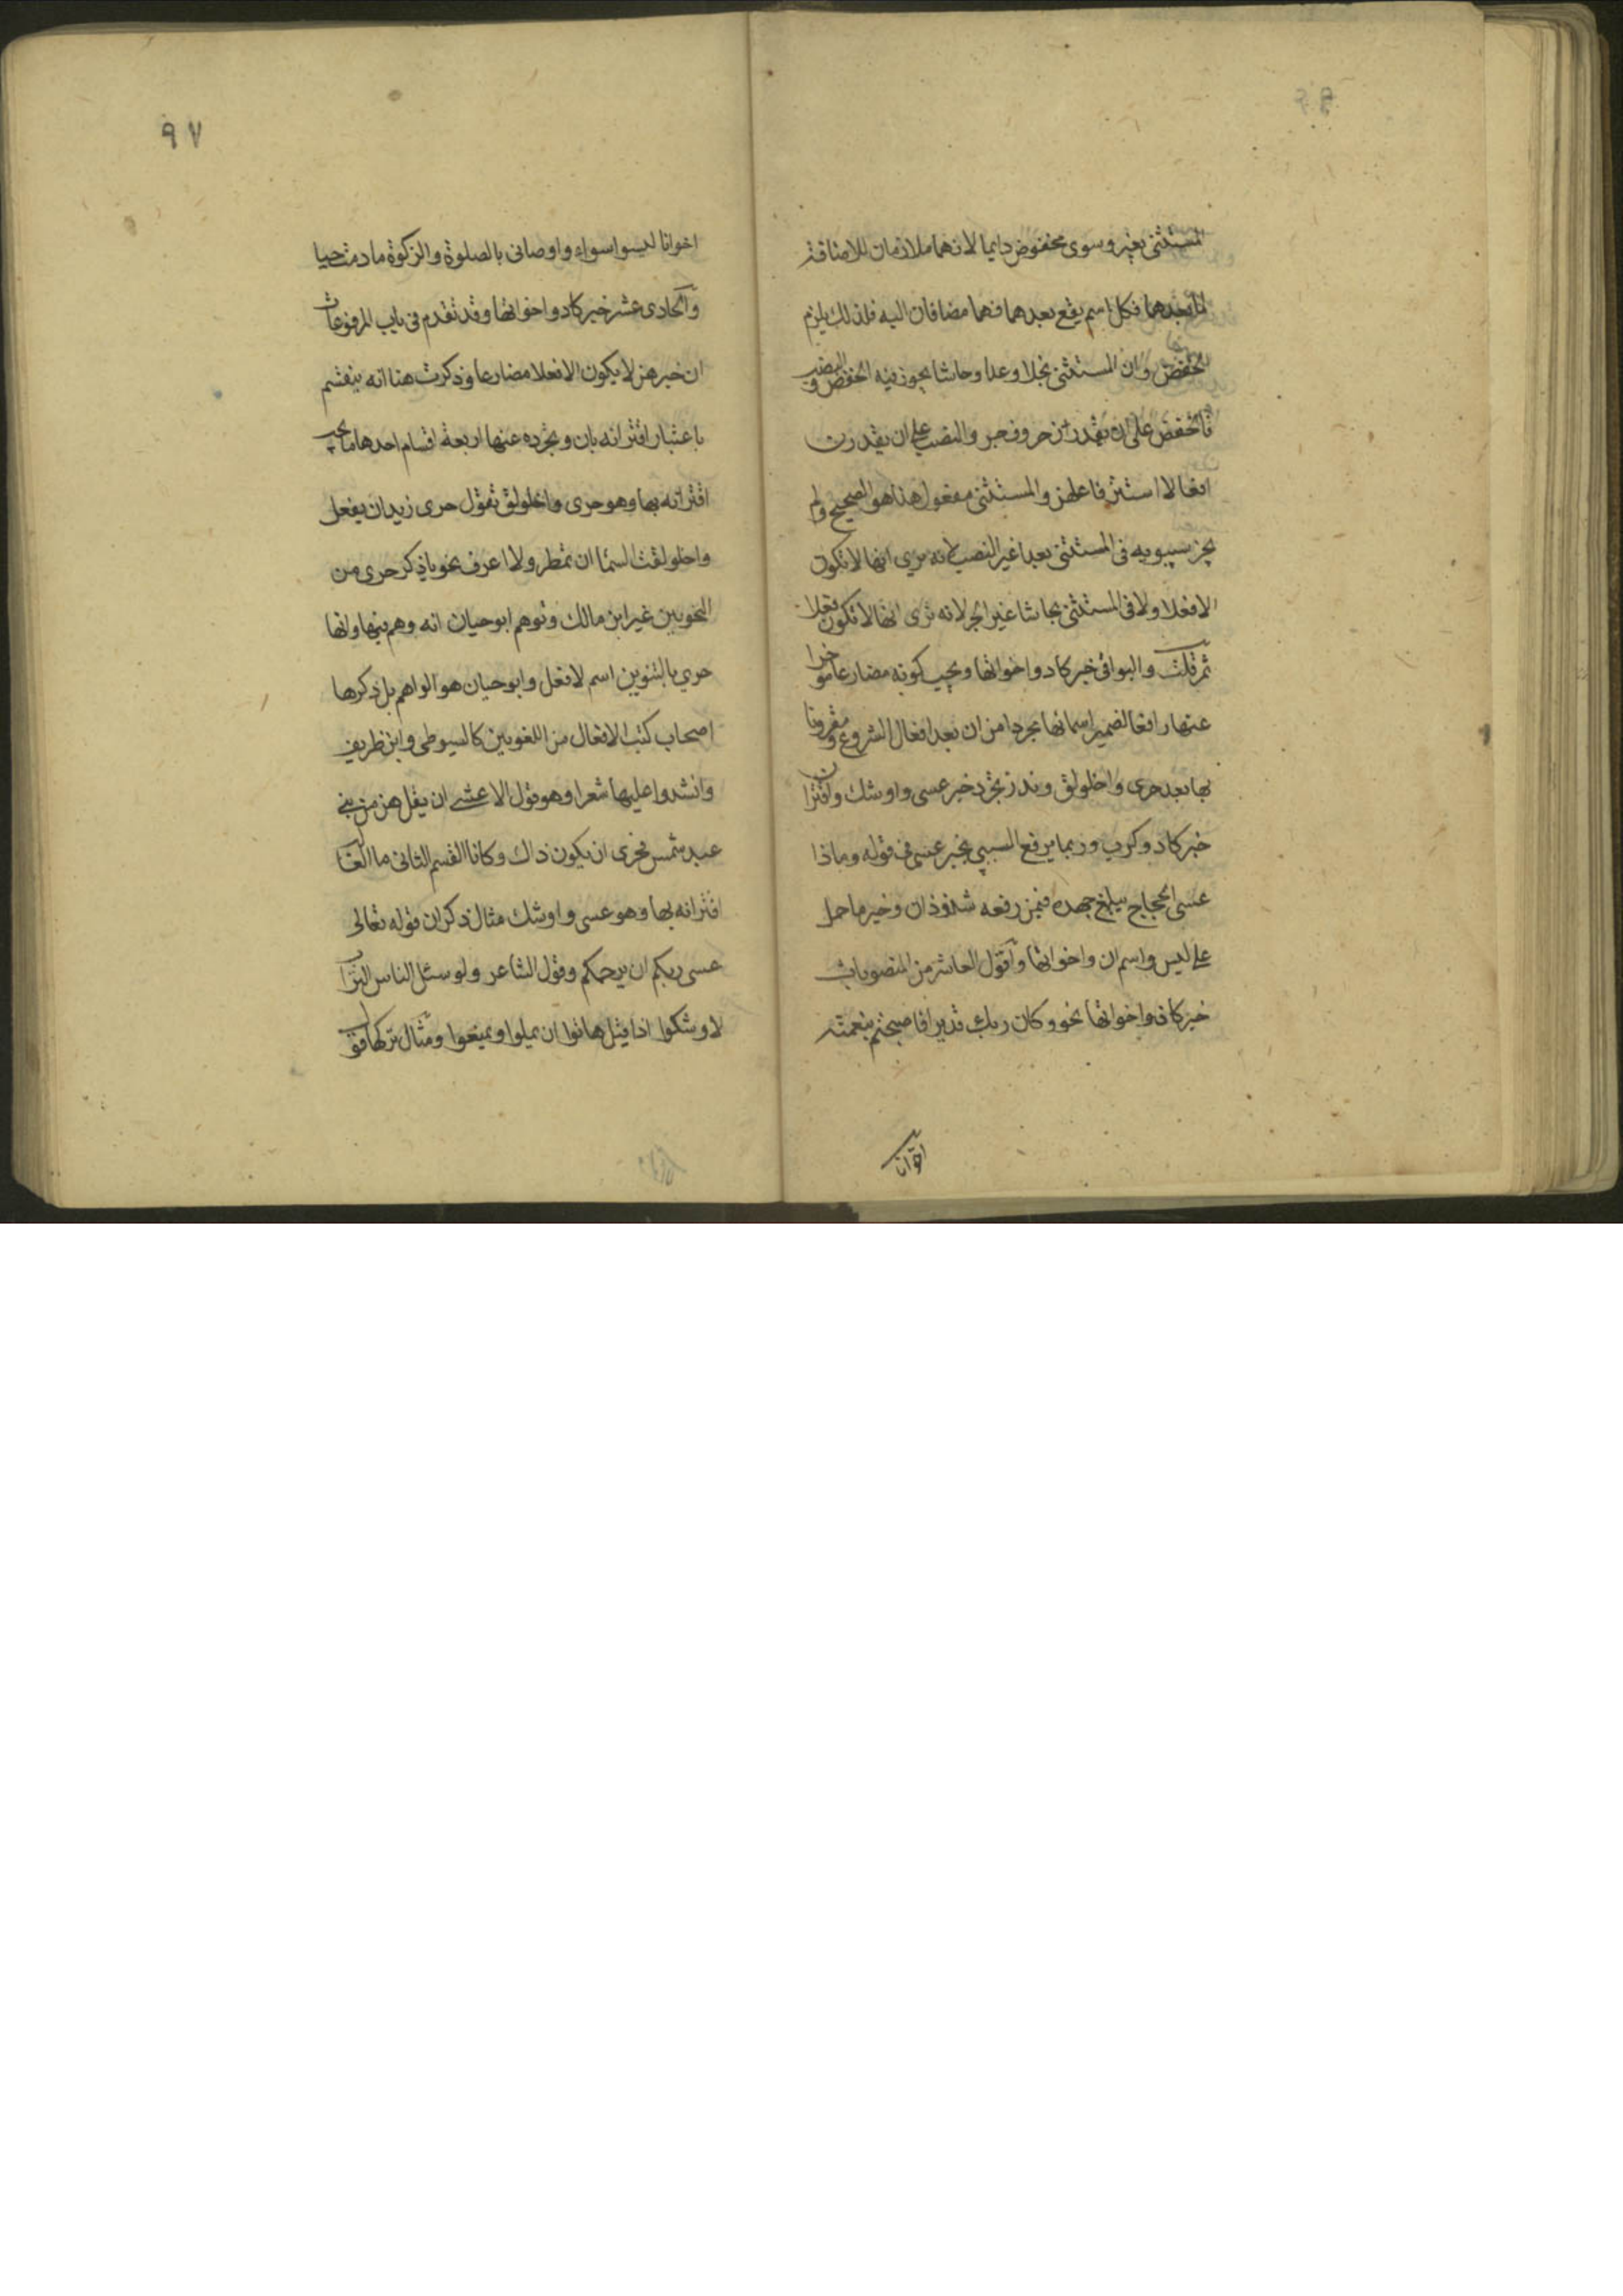 المستثنى بغير وسوى مخفوض دايما لانهما ملازمان للاضافة
لما بعدهما فكل اسم يقع بعدهما فهما مضافان اليه فلذلك يلزم
الخفض وان المستثنى بخلا وعدا وحاشا يجوز فيه الخفض والنصب
فالخفض على ان يقدرن حروف جر والنصب على ان يقدرن
افعالا استتر فاعلهن والمستثنى مفعول هذا هو الصحيح ولم
يجز سيبويه فى المستثنى بعدا غير النصب لانه يرى انها لا تكون
الا فعلا ولا فى المستثنى بحاشا غير الجر لانه ترى انها لا تكون فعلا
ثم قلت والبواقى خبر كاد واخواتها ويجب كونه مضارعا موخرا
عنها رافعا لضمير اسمائها مجردا من ان بعد افعال الشروع ومقرونا
بها بعد حرى واخلولق وندر تجرد خبر عسى واوشك واقتران
خبر كاد وكرب وربما يرفع السببي بخبر عسى فى قوله وماذا
عسى الحجاج يبلغ جهده فيمن رفعه شذوذان وخبر ما حمل
على ليس واسم ان واخواتها واقول العاشر من المنصوبات
خبر كان واخواتها نحو وكان ربك قديرا فاصبحتم بنعمته
اخوانا
٩٧
اخوانا ليسوا سواء واوصانى بالصلوة والزكوة ما دمت حيا
والحادى عشر خبر كاد واخواتها وقد تقدم فى باب المرفوعات
ان خبرهن لا يكون الا فعلا مضارعا وذكرت هنا انه ينقسم
باعتبار اقترانه بان وتجرده عنها اربعة اقسام احدها ما يجب
اقترانه بها وهو حرى واخلولق تقول حرى زيد ان يفعل
واخلولقت السما ان تمطر ولا اعرف نحويا ذكر حرى من
النحويين غير ابن مالك وتوهم ابو حيان انه وهم فيها وانها
حري بالتنوين اسم لا فعل وابو حيان هو الواهم بل ذكرها
اصحاب كتب الافعال من اللغويين كالسيوطى وابن طريف
وانشدوا عليها شعرا وهو قول الاعشى ان يقل هن من بنى
عبد شمس فحرى ان يكون ذاك وكانا القسم الثانى ما الغالب
اقترانه بها وهو عسى واوشك مثال ذكر ان قوله تعالى
عسى ربكم ان يرحمكم وقول الشاعر ولو سئل الناس التراب
لاوشكوا اذا قيل هاتوا ان يملوا ويمنعوا ومثال تركها قول